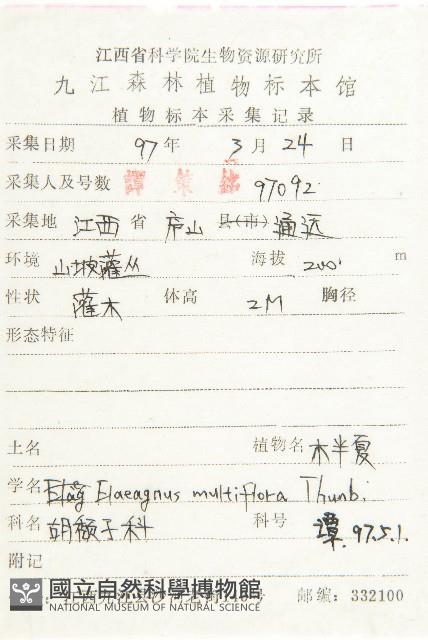 江西省科学院生物资源研究所
九江森林植物标本馆
植物标本采集记录
采集日期 97年 3月 24日
采集人及号数 譚策銘 97092
采集地 江西省 庐山 县(市) 通远
环境 山坡灌丛 海拔 200' m
性状 灌木 体高 2M 胸径
形态特征
土名 植物名 木半夏
学名 Elaeagnus multiflora Thunb.
科名 胡颓子科 科号 譚.97.5.1.
附记
國立自然科學博物館
NATIONAL MUSEUM OF NATURAL SCIENCE
邮编: 332100